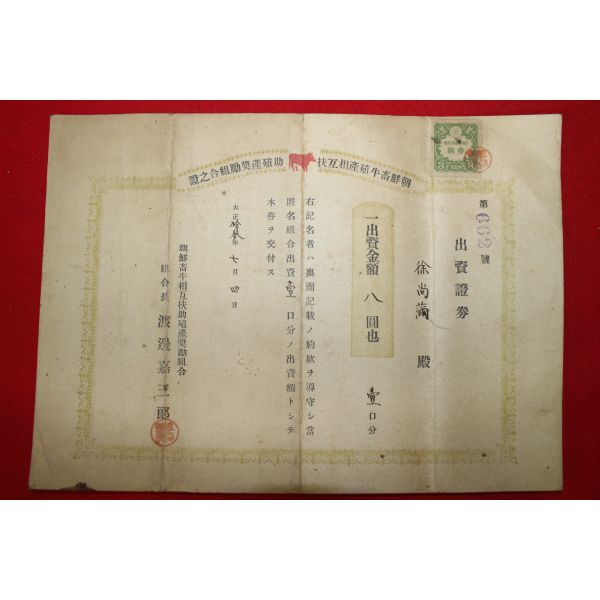 朝鮮畜牛殖產相互扶助殖產奬勵組合之證
第662號
出資證券
徐尚 殿
一出資金額 八圓也 壹口分
右記名者ハ裏面記載ノ約欵ヲ導守シ當
匿名組合出資壹口分ノ出資額トシテ
本券ヲ交付ス
大正拾參年七月四日
朝鮮畜牛相互扶助殖產奬勵組合
組合長 渡邊嘉三郎